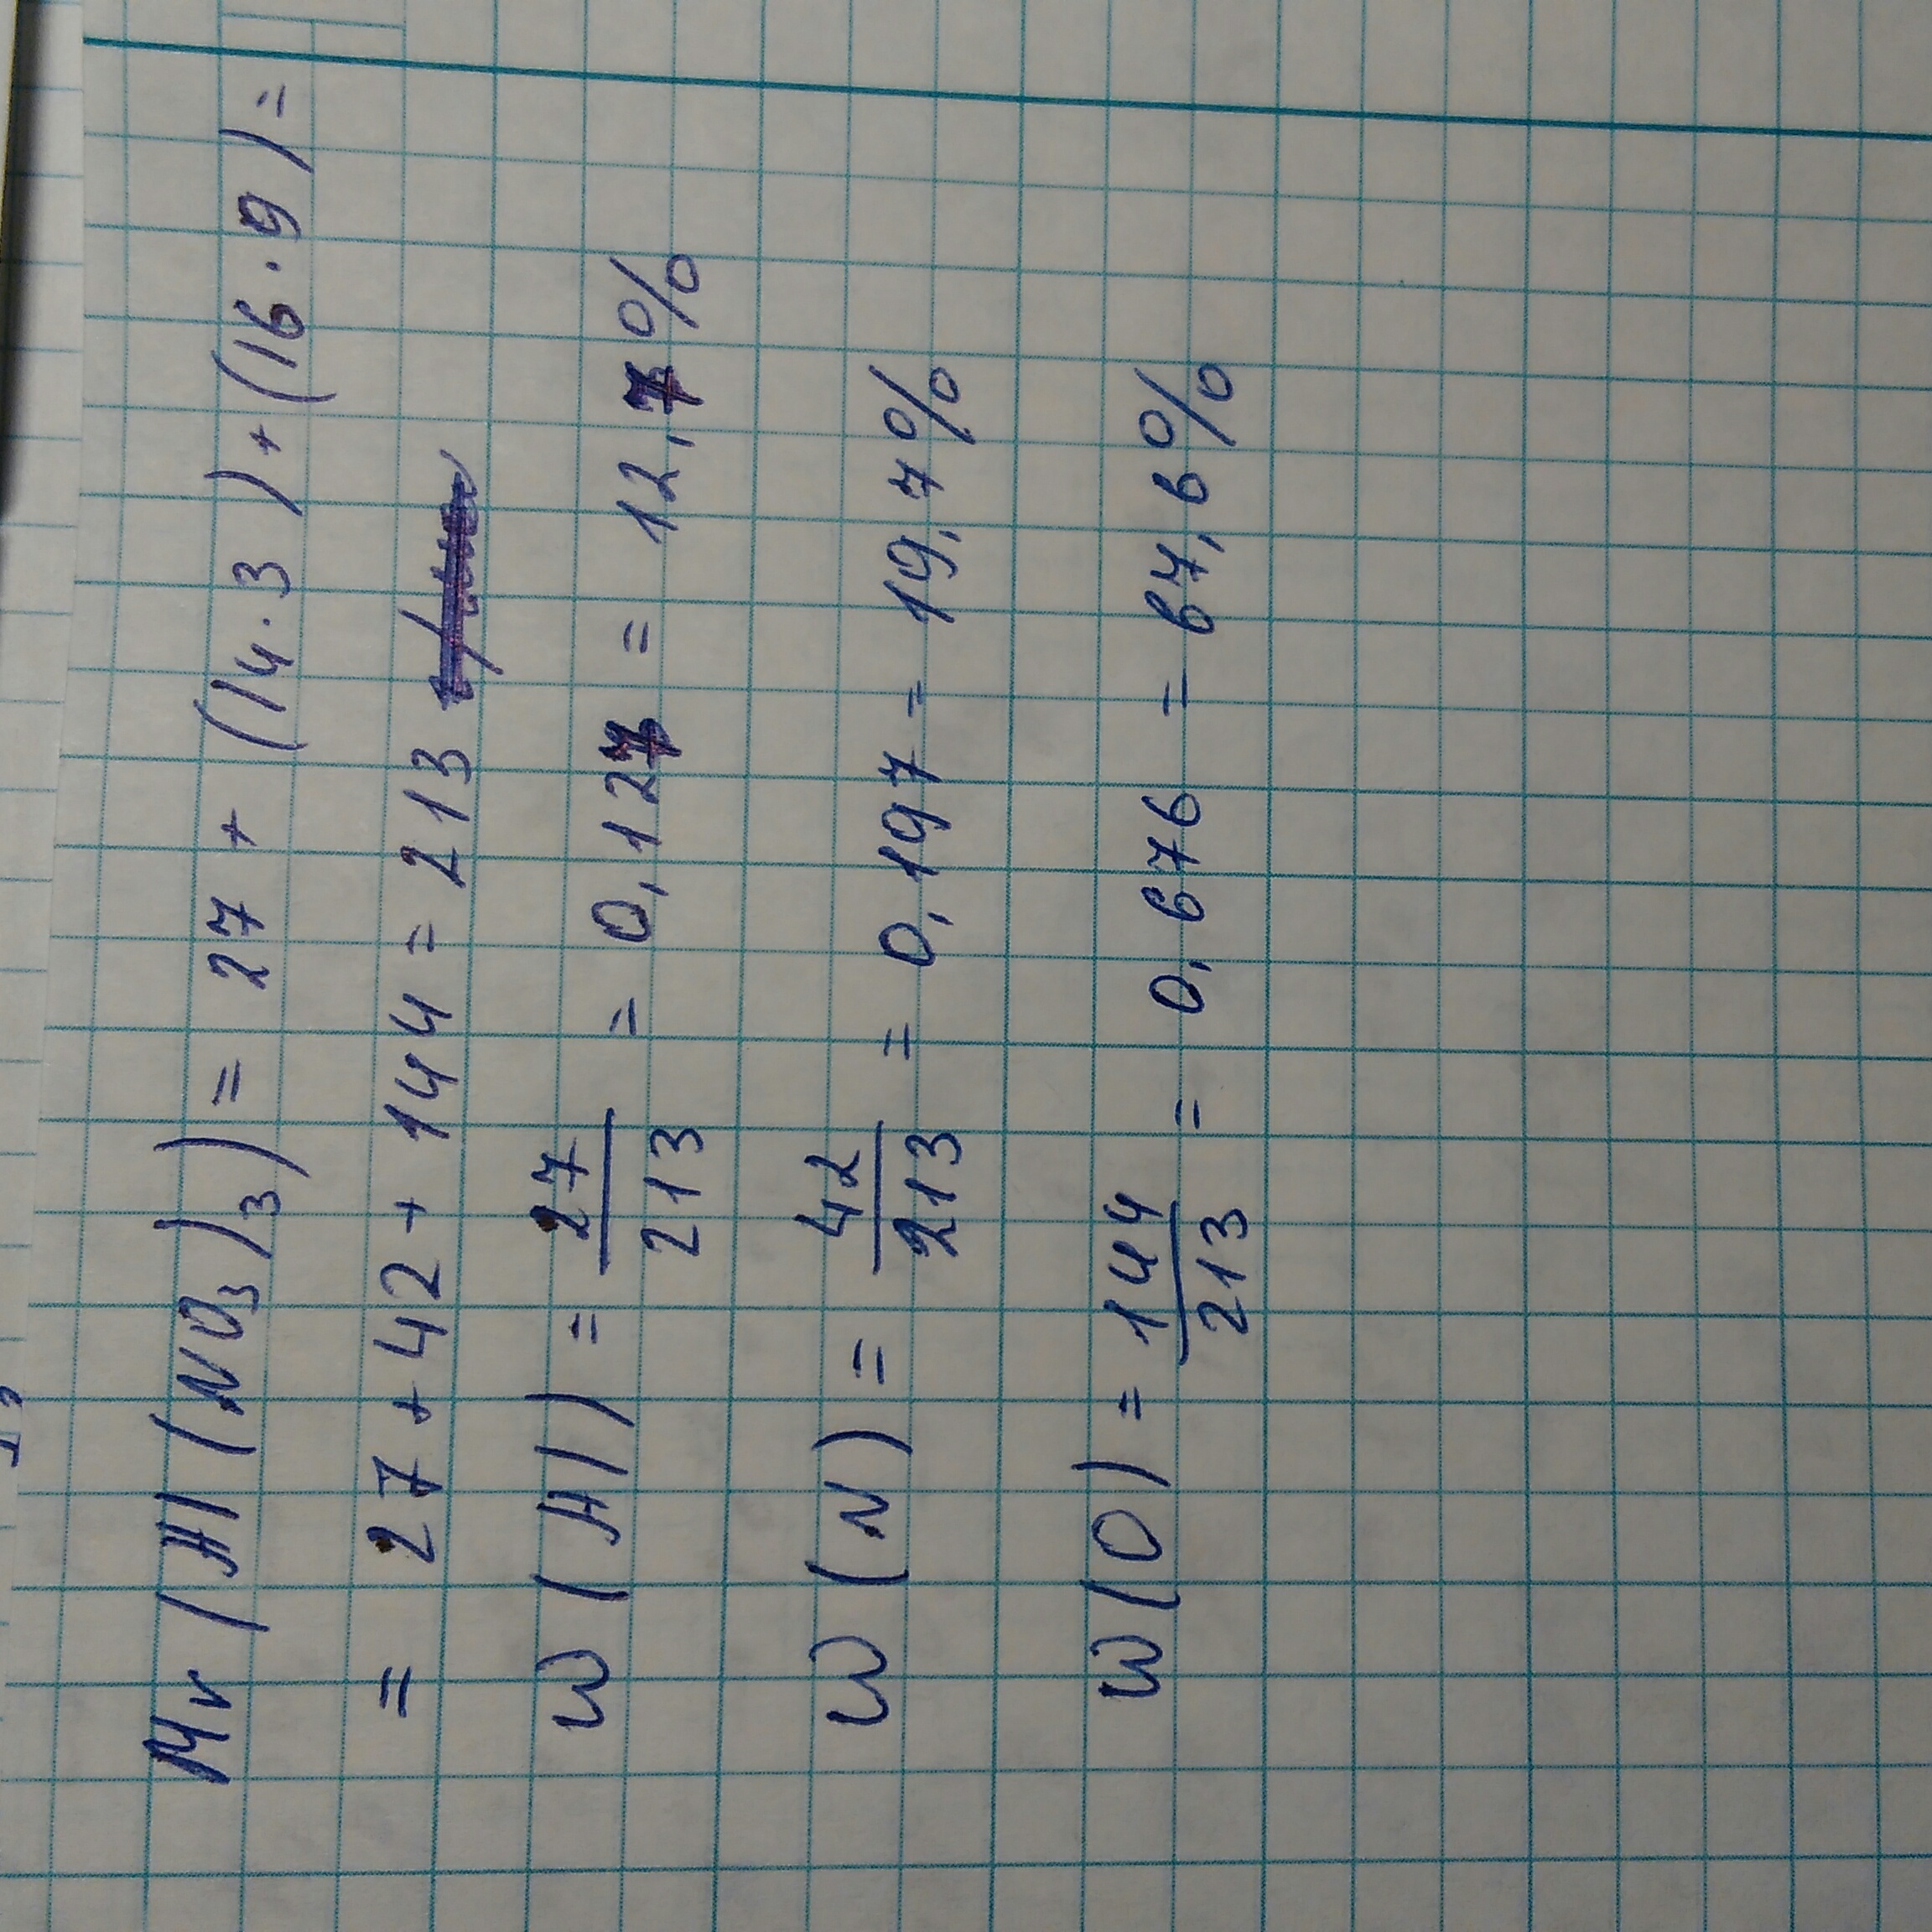 Mr (Al(NO₃)₃) = 27 + (14·3) + (16·9) =
= 27 + 42 + 144 = 213
W (Al) = 27/213 = 0,127 = 12,7%
W (N) = 42/213 = 0,197 = 19,7%
W (O) = 144/213 = 0,676 = 67,6%